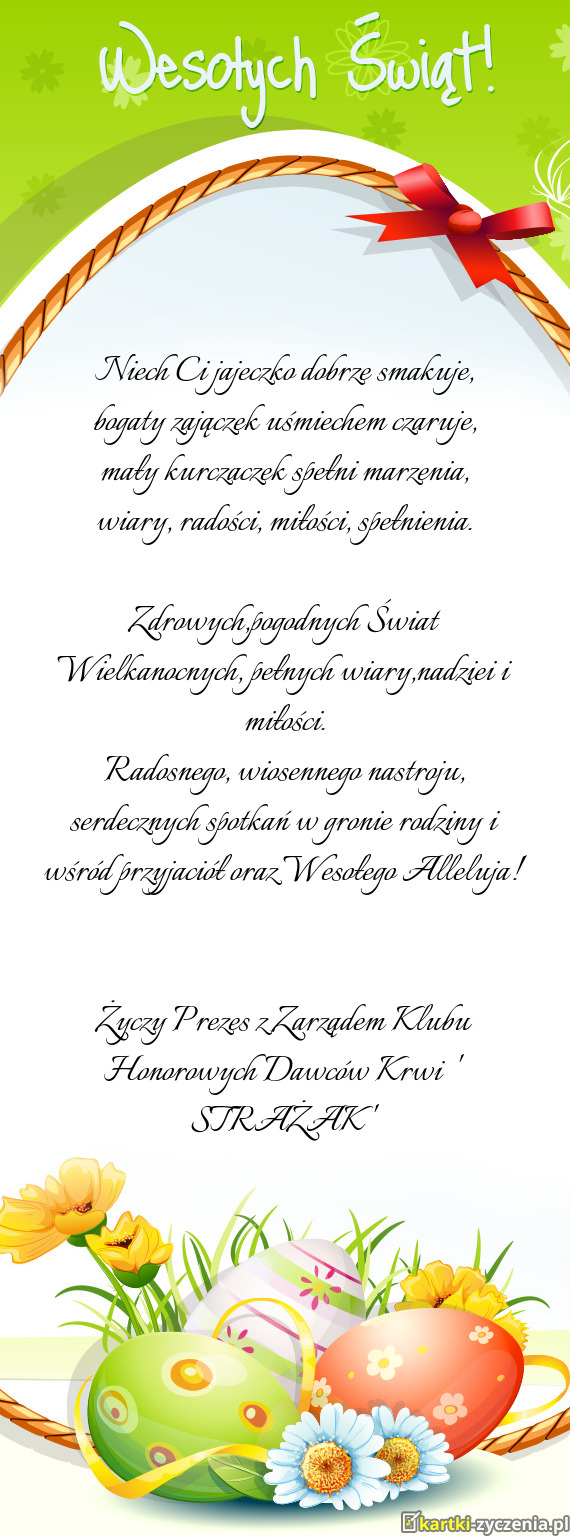 Wesołych Świąt!
Niech Ci jajeczko dobrze smakuje,
bogaty zajączek uśmiechem czaruje,
mały kurczaczek spełni marzenia,
wiary, radości, miłości, spełnienia.
Zdrowych,pogodnych Świat
Wielkanocnych, pełnych wiary,nadziei i
miłości.
Radosnego, wiosennego nastroju,
serdecznych spotkań w gronie rodziny i
wśród przyjaciół oraz Wesołego Alleluja!
Życzy Prezes z Zarządem Klubu
Honorowych Dawców Krwi '
STRAŻAK '
kartki-zyczenia.pl